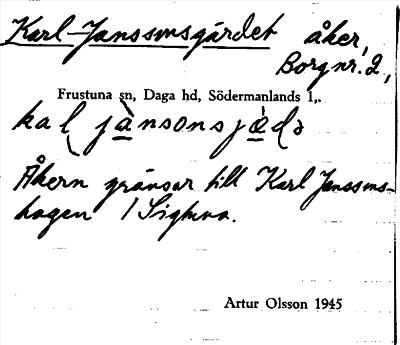 Karl-Janssonsgärdet åker,
Borgnr. 2,
Frustuna sn, Daga hd, Södermanlands l,.
kal jànsonsjæ̀də
Åkern gränsar till Karl Janssons-
hagen / Sigtuna.
Artur Olsson 1945